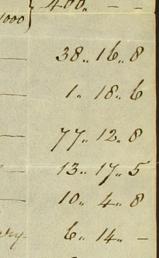 400.. — —
1000
38.. 16.. 8
1.. 18.. 6
77.. 12.. 8
13.. 17.. 5
10.. 4.. 8
6.. 14.. —